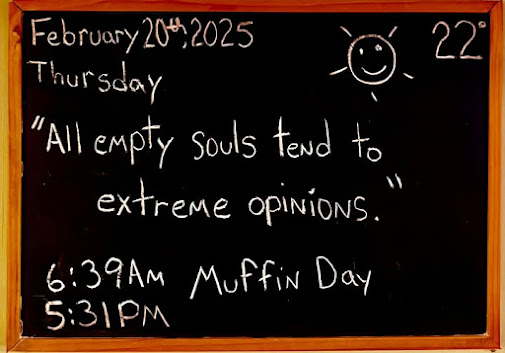 February 20th, 2025
22°
Thursday
"All empty souls tend to
extreme opinions."
6:39AM Muffin Day
5:31PM